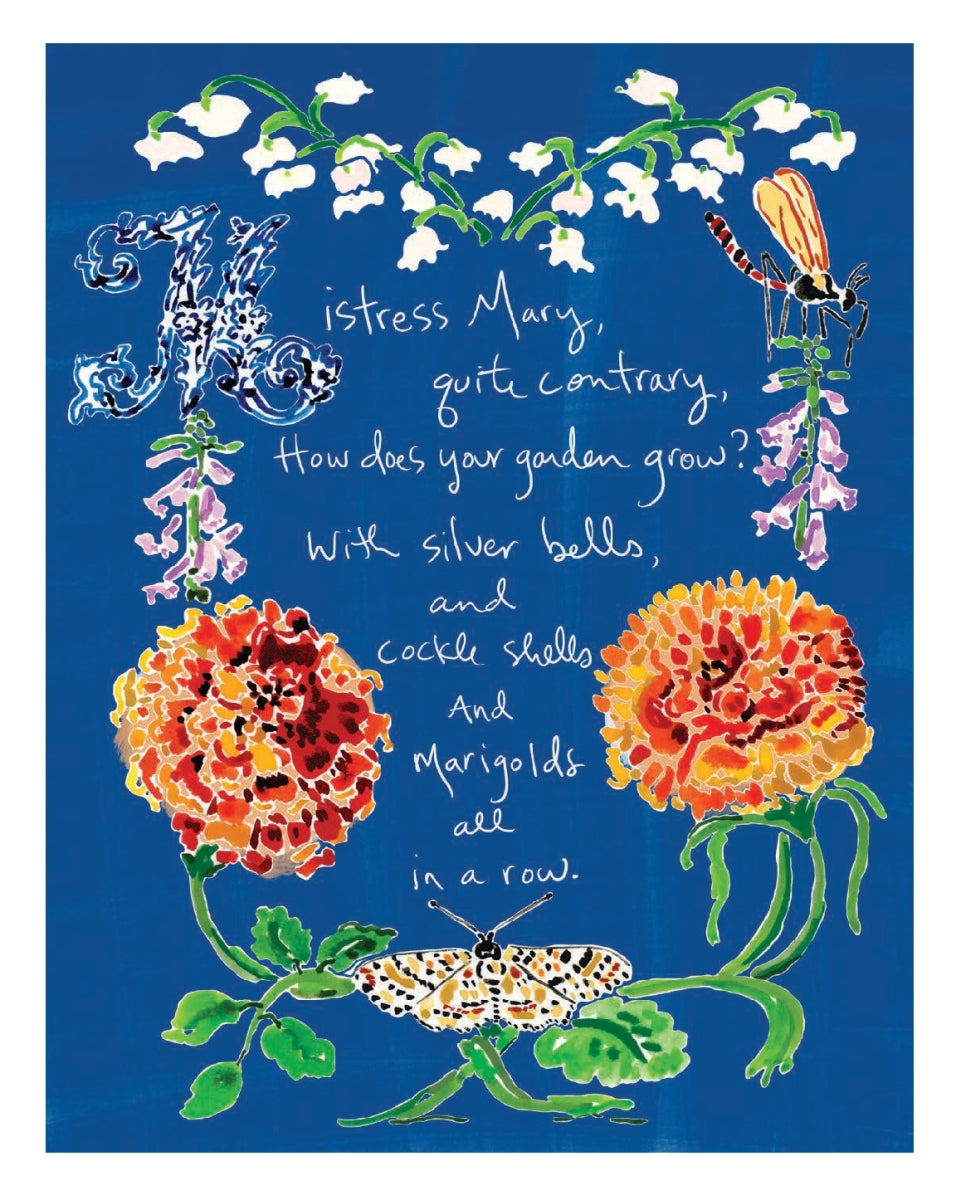 Mistress Mary,
quite contrary,
How does your garden grow?
With silver bells,
and
cockle shells
And
Marigolds
all
in a row.